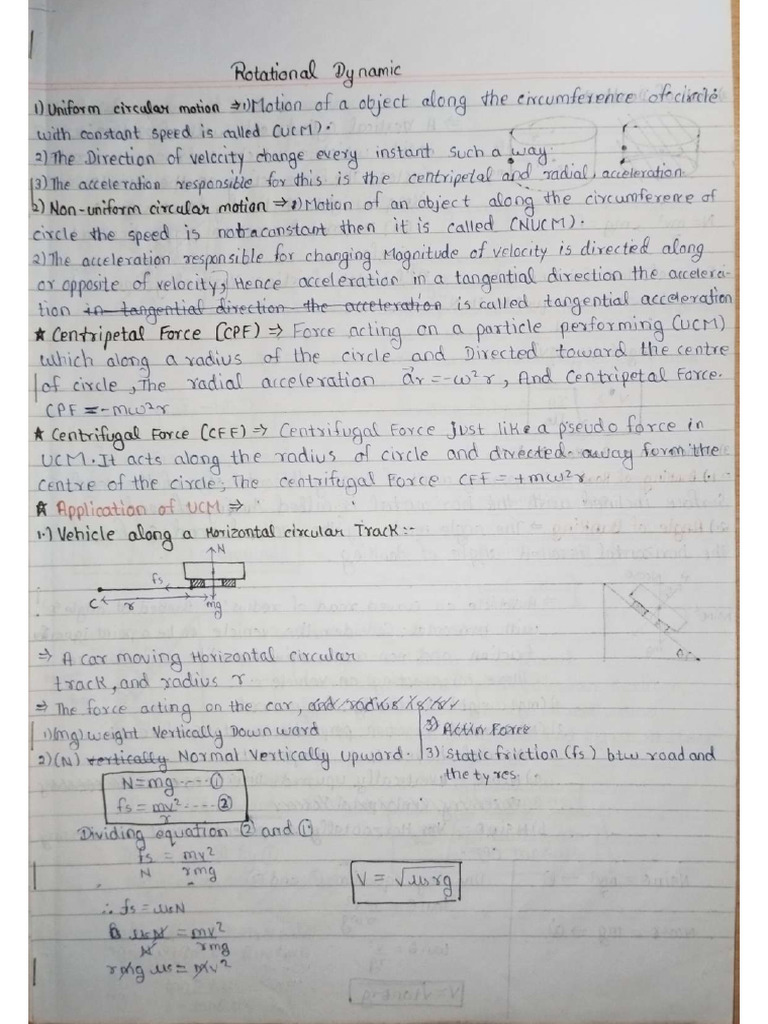 Rotational Dynamic
1) Uniform circular motion ⇒ 1) Motion of a object along the circumference of circle
with constant speed is called (UCM).
2) The Direction of velocity change every instant such a way.
3) The acceleration responsible for this is the centripetal and radial acceleration.
2) Non-uniform circular motion ⇒ 1) Motion of an object along the circumference of
circle the speed is not constant then it is called (NUCM).
2) The acceleration responsible for changing Magnitude of velocity is directed along
or opposite of velocity, Hence acceleration in a tangential direction the accelera-
tion in tangential direction the acceleration is called tangential acceleration
★ Centripetal Force (CPF) ⇒ Force acting on a particle performing (UCM)
which along a radius of the circle and Directed toward the centre
of circle, The radial acceleration a⃗r = -ω²r, And Centripetal Force.
CPF = -mω²r
★ Centrifugal Force (CFF) ⇒ Centrifugal Force Just like a pseudo force in
UCM. It acts along the radius of circle and directed away form the
centre of the circle, The centrifugal Force CFF = +mω²r
★ Application of UCM ⇒
1.) Vehicle along a Horizontal circular Track:-
N
fs
C r mg
⇒ A car moving Horizontal circular
track, and radius r
⇒ The force acting on the car, and radius
1) (mg) weight Vertically Down ward
3) Action Force
2) (N) vertically Normal Vertically upward.
3) Static friction (fs) btw road and
the tyres.
N = mg ..... ①
fs = mv²/r ..... ②
Dividing equation ② and ①
fs/N = mv²/rmg
V = √μsrg
∴ fs = μsN
μsN/N = mv²/rmg
rmg μs = mv²